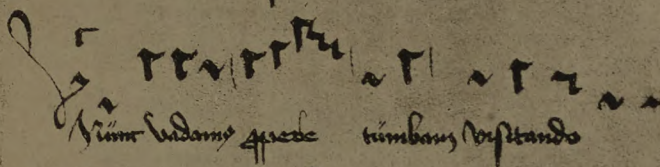 Nunc vadamus prope tumbam visitando